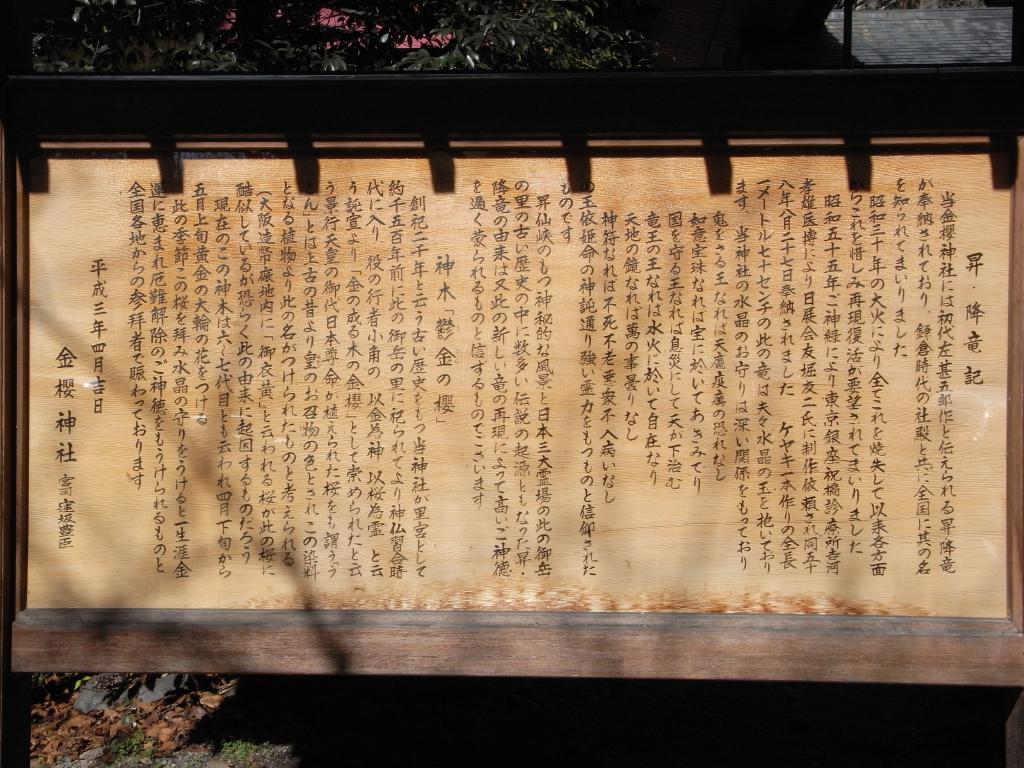 昇・降竜記
当金櫻神社には初代左甚五郎作と伝えられる昇降竜
が奉納されており、鎌倉時代の社殿と共に全国に其の名
を知られてまいりました
昭和三十年の大火により全てこれを焼失して以来各方面
からこれを惜しみ再現復活が要望されてまいりました
昭和五十五年ご神縁により東京銀座祝橋診療所寺河
孝雄医博により日展会友堀友二氏に制作依頼され同五十
八年八月二十七日奉納されました ケヤキ一本作りの全長
一メートル七十センチの此の竜は夫々水晶の玉を抱いており
ます 当神社の水晶のお守りは深い関係をもっており
鬼をさる王なれば天魔疫癘の恐れなし
如意宝珠なれば宝に於いてあきみてり
国を守る王なれば息災にして天が下治む
竜王の王なれば水火に於いて自在なり
天地の鏡なれば萬の事曇りなし
神符なれば不死不老亜衆不入病いなし
の玉依姫命の神託通り強い霊力をもつものと信仰された
ものです
昇仙峡のもつ神秘的な風景と日本三大霊場の此の御岳
の里の古い歴史の中に数多い伝説の起源ともなった昇・
降竜の由来は又此の新しい竜の再現によって高いご神徳
を遍く蒙られるものと信ずるものでございます
神木「鬱金の櫻」
創祀二千年と云う古い歴史をもつ当神社が里宮として
約千五百年前に此の御岳の里に祀られてより神仏習合時
代に入り 役の行者小角の 以金為神 以桜為霊 と云
う託宣より「金の成る木の金櫻」として崇められたと云
う景行天皇の御代日本尊命が植えられた桜をも謂「う
こん」とは上古の昔より皇のお召物の色とされ この染料
となる植物より此の名がつけられたものと考えられる
（大阪造幣廠地内に「御衣黄」と云われる桜が此の桜に
酷似しているが恐らく此の由来に起因するものだろう
現在のこの神木は六〜七代目とも云われ四月下旬から
五月上旬黄金の大輪の花をつける
此の季節この桜を拝み水晶の守りをうけると一生涯金
運に恵まれ厄難解除のご神徳をもうけられるものと
全国各地からの参拝者で賑わっております
平成三年四月吉日
金櫻神社 宮司 窪坂豊臣